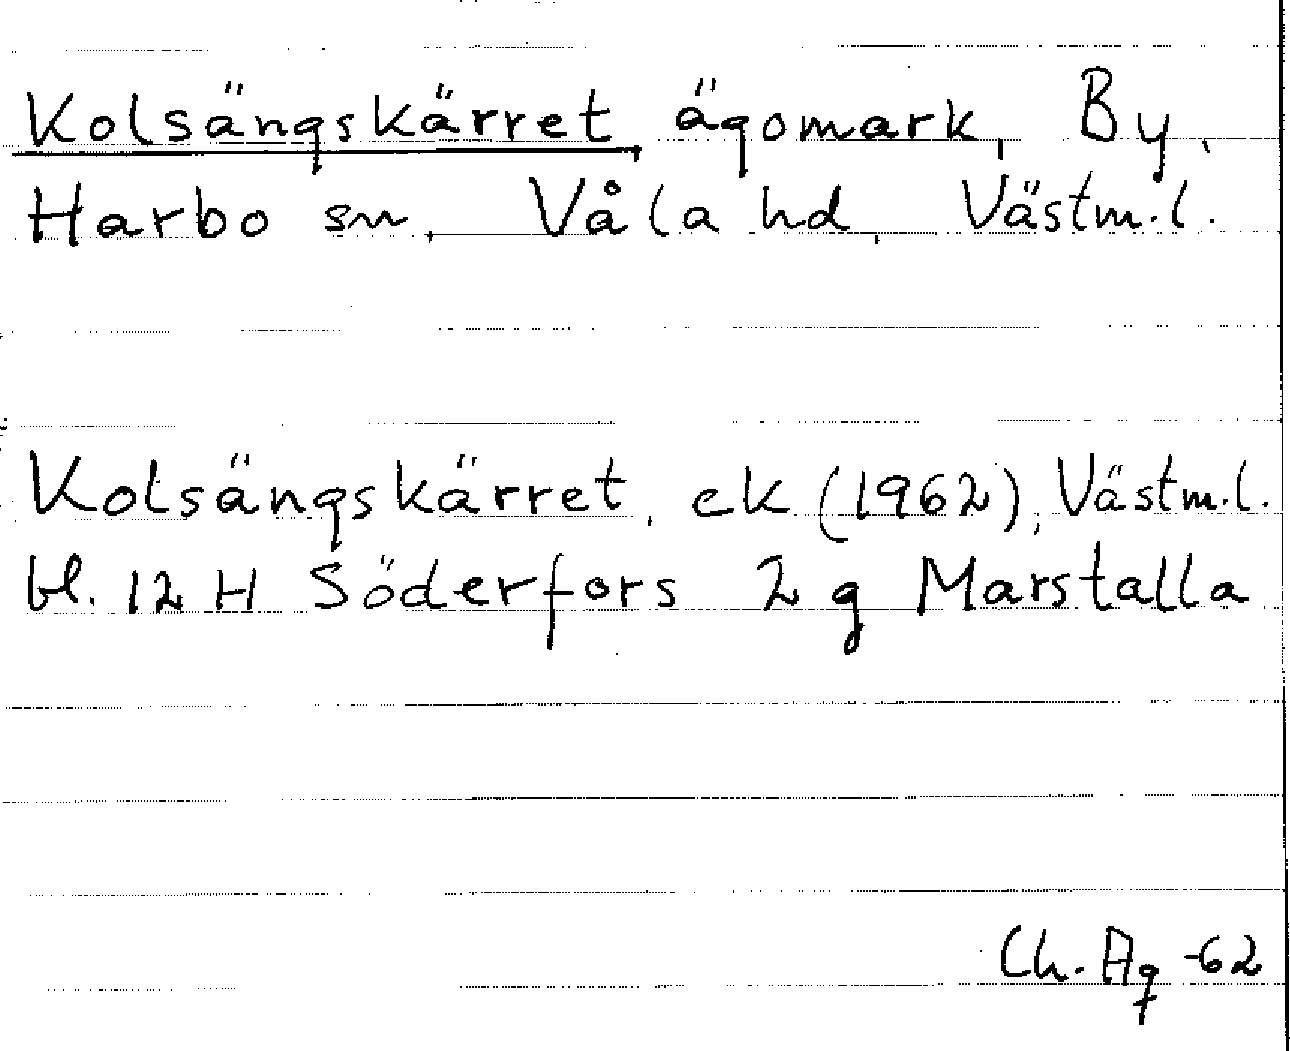 Kolsängskärret, ägomark, By,
Harbo sn, Våla hd, Västm.l.
Kolsängskärret, ek (1962), Västm.l.
bl. 12 H Söderfors 2 g Marstalla
Ch. Ag -62